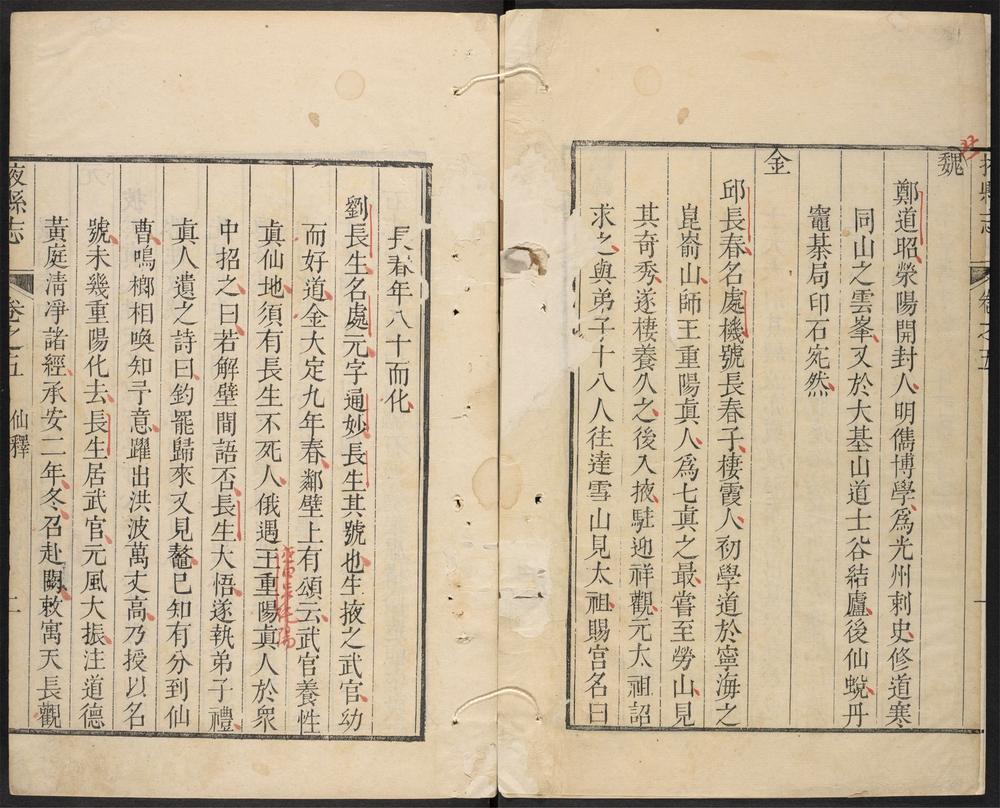 掖縣志 卷之五
魏
鄭道昭滎陽開封人明儁博學爲光州刺史修道寒
同山之雲峯又於大基山道士谷結廬後仙蛻丹
竈棊局印石宛然
金
邱長春名處機號長春子棲霞人初學道於寧海之
崑崳山師王重陽眞人爲七眞之最嘗至勞山見
其奇秀遂棲養久之後入掖駐迎祥觀元太祖詔
求之與弟子十八人往達雪山見太祖賜宮名曰
長春年八十而化
劉長生名處元字通妙長生其號也生掖之武官幼
而好道金大定九年春鄰壁上有頌云武官養性
眞仙地須有長生不死人俄遇王重陽眞人於眾
中招之曰若解壁間語否長生大悟遂執弟子禮
眞人遺之詩曰釣罷歸來又見鼇已知有分到仙
曹鳴榔相喚知予意躍出洪波萬丈高乃授以名
號未幾重陽化去長生居武官元風大振注道德
黃庭清淨諸經承安二年冬召赴闕敕寓天長觀
掖縣志 卷之五 仙釋 二